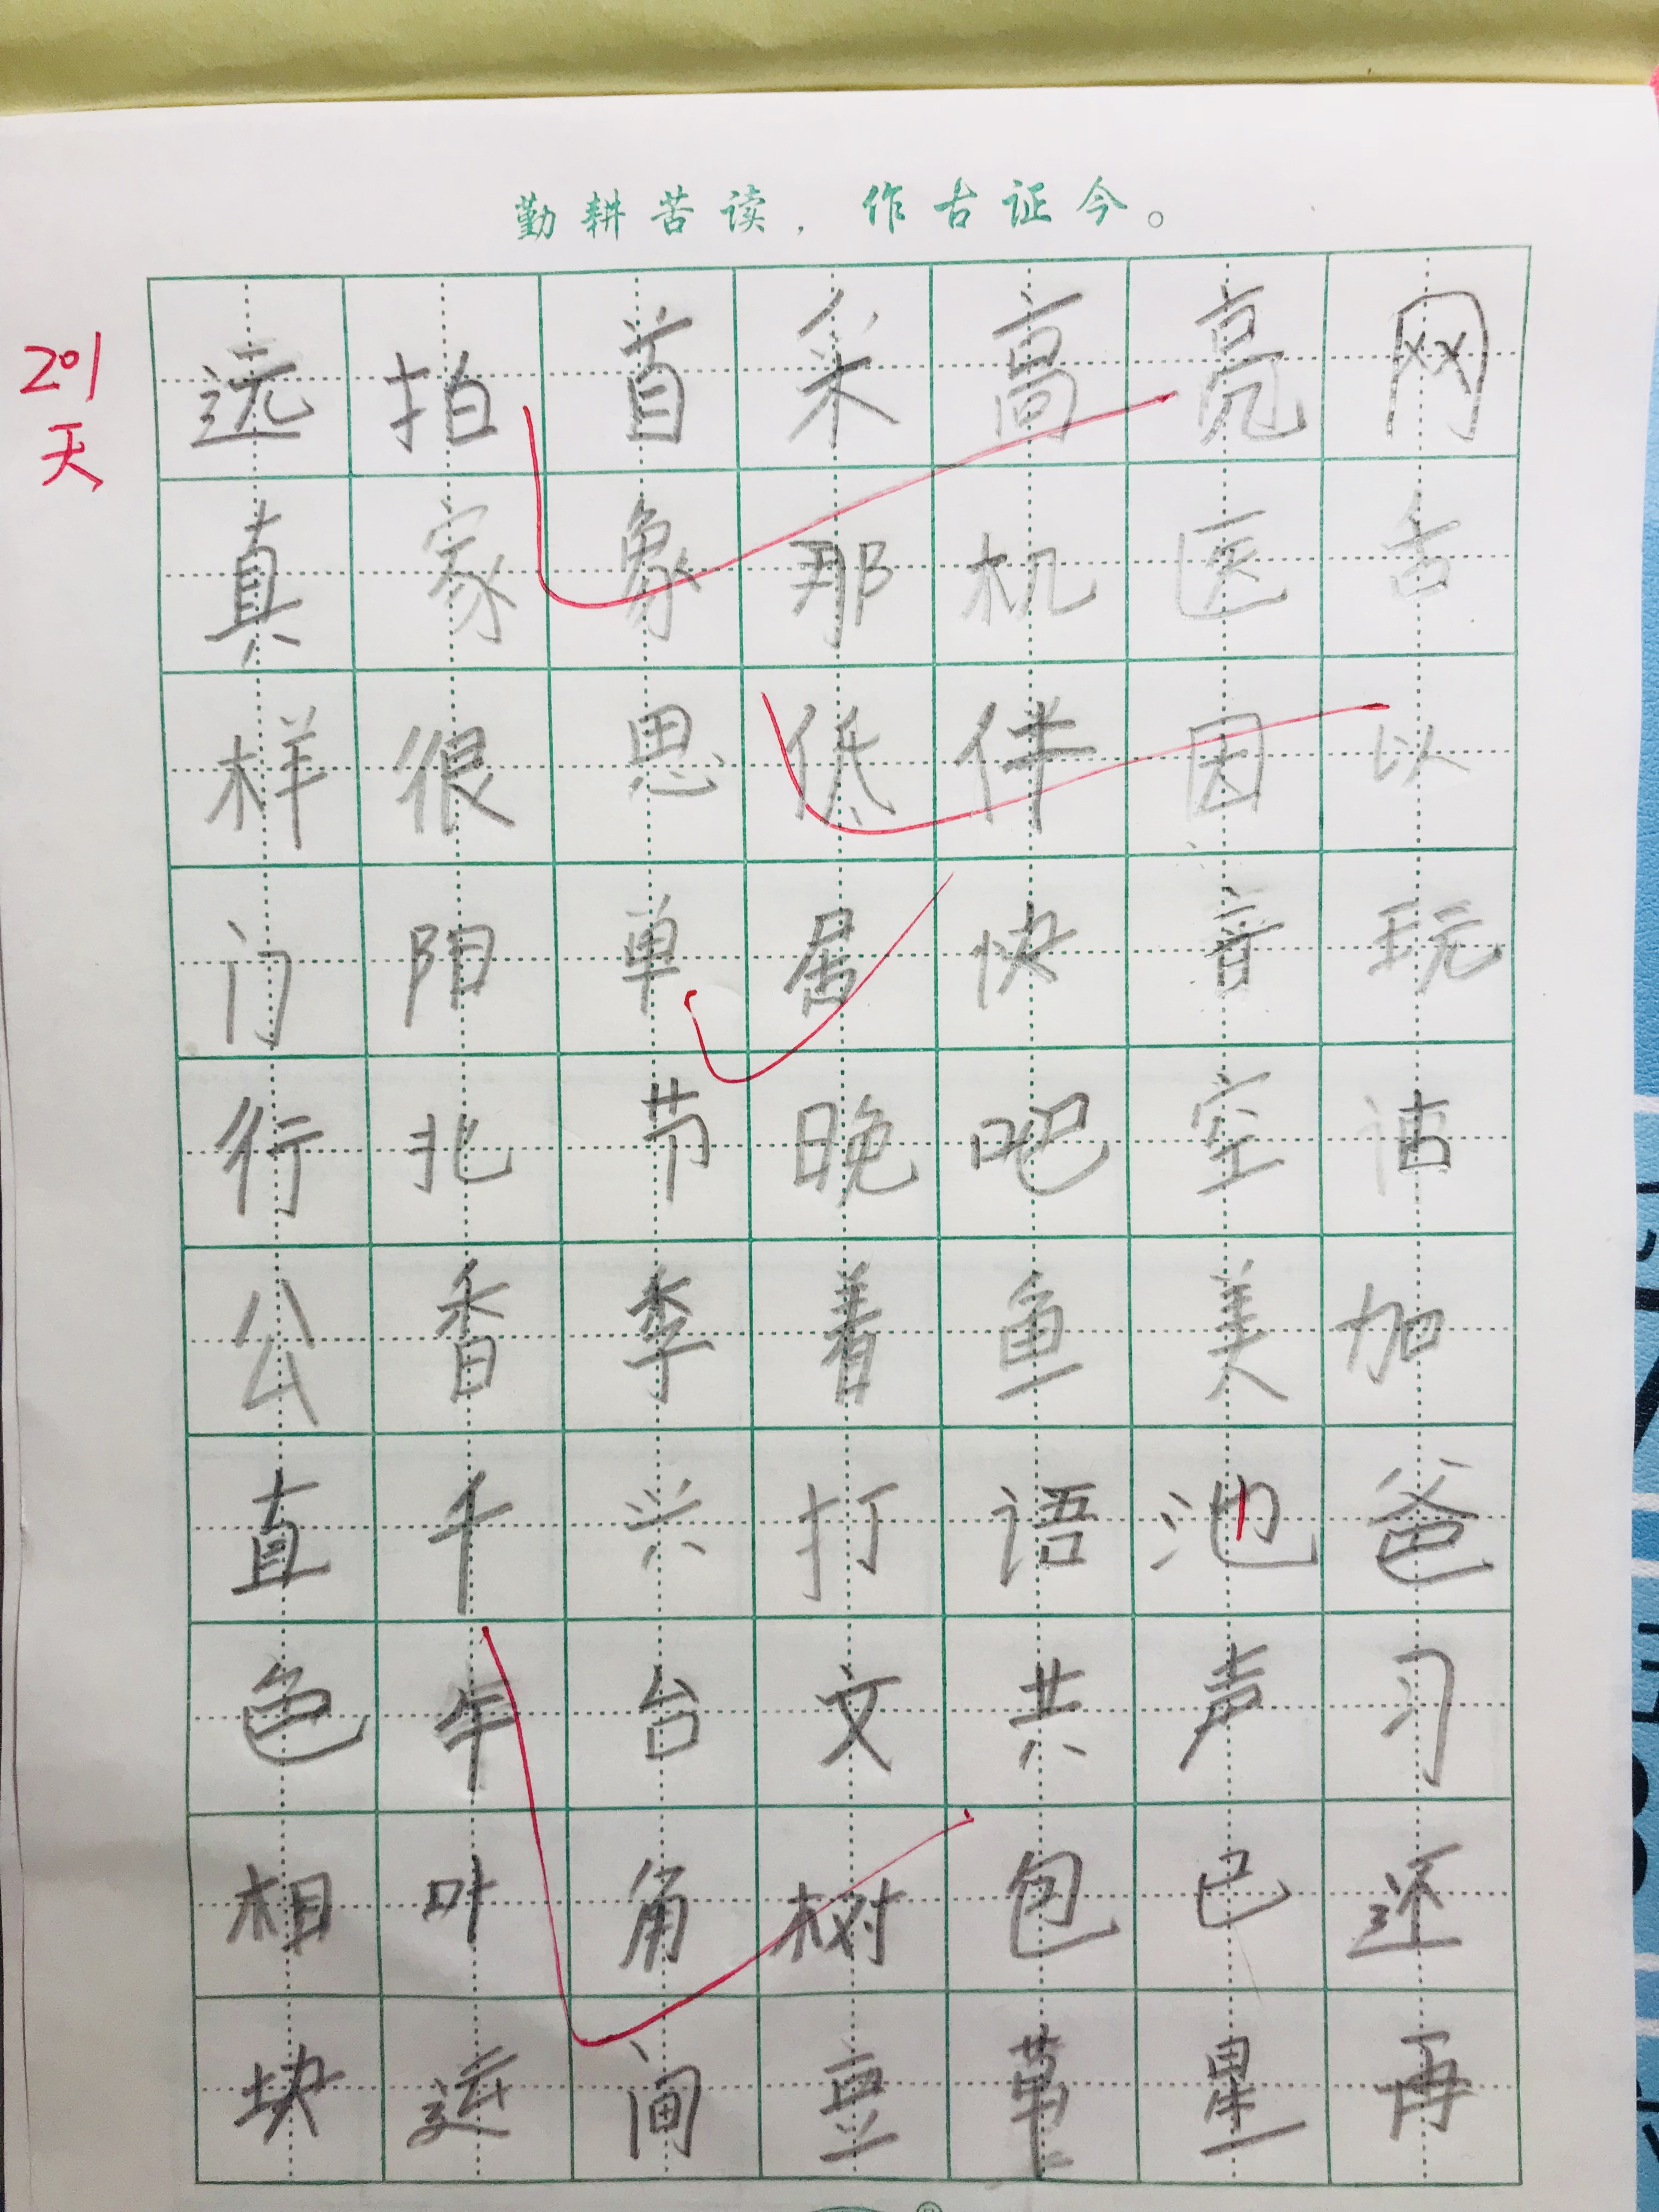 勤耕苦读，作古证今。
201
天
远拍首采高亮网
真家象那机医舌
样很思低伴因以
门阳单居快音玩
行北节晚吧空诂
公香季着鱼美加
直千兴打语池爸
色年台文共声习
相叶角树包已还
块运间豆草星再